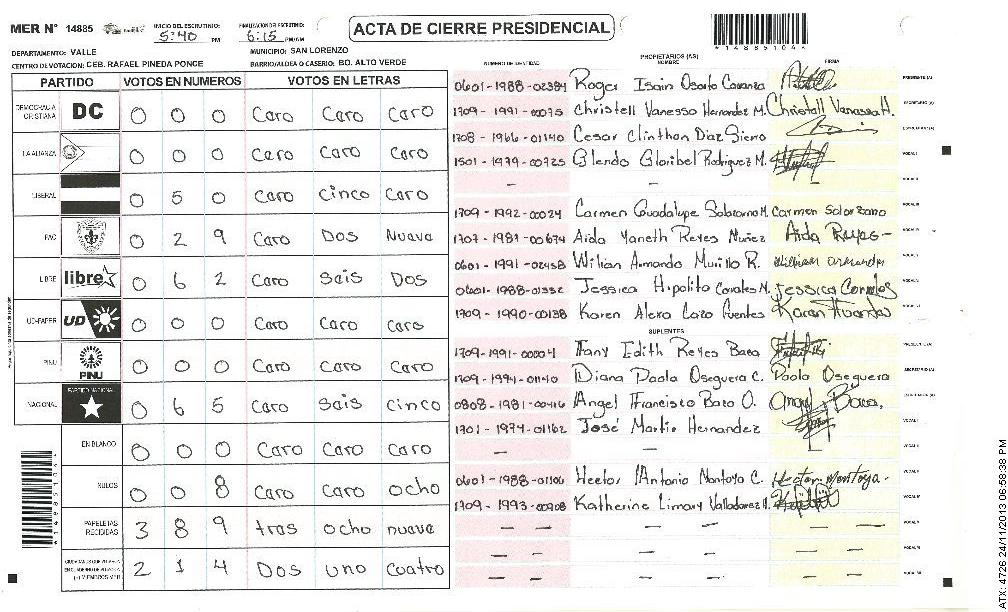 MER N° 14885
INICIO DEL ESCRUTINIO: 5:40 PM
FINALIZACION DEL ESCRUTINIO: 6:15 PM/AM
ACTA DE CIERRE PRESIDENCIAL
148851044
DEPARTAMENTO: VALLE
MUNICIPIO: SAN LORENZO
CENTRO DE VOTACION: CEB. RAFAEL PINEDA PONCE
BARRIO/ALDEA O CASERIO: BO. ALTO VERDE
PARTIDO VOTOS EN NUMEROS VOTOS EN LETRAS
DEMOCRACIA CRISTIANA DC 0 0 0 Caro Caro Caro
LA ALIANZA 0 0 0 Caro Caro Caro
LIBERAL 0 5 0 Caro Cinco Caro
PAC 0 2 9 Caro Dos Nueve
LIBRE libre 0 6 2 Caro Sais Dos
UD-FAPER UD 0 0 0 Caro Caro Caro
PINU PINU 0 0 0 Caro Caro Caro
NACIONAL PARTIDO NACIONAL 0 6 5 Caro Sais Cinco
EN BLANCO 0 0 0 Caro Caro Caro
NULOS 0 0 8 Caro Caro ocho
PAPELETAS RECIBIDAS 3 8 9 tras ocho nueve
2 1 4 Dos uno cuatro
NUMERO DE IDENTIDAD PROPIETARIOS (AS) NOMBRE FIRMA
0601-1988-02384 Roger Isain Osorto Carranza PRESIDENTE (A)
1709-1991-00075 Christell Vanessa Hernandez M. Christall Vanassa H. SECRETARIO (A)
1708-1966-01140 Cesar Clinthon Diaz Sierro ESCRUTADOR (A)
1501-1979-00725 Glendo Gloribel Rodriguez M. VOCAL I
— — — VOCAL II
1709-1992-00024 Carmen Guadalupe Solorzano M. Carmen Solorzano VOCAL III
1707-1981-00674 Aida Yaneth Reyes Nuñez Aida Reyes VOCAL IV
0601-1991-02458 Wilian Armando Murillo R. William armando VOCAL V
0601-1988-01332 Jessica Hipolito Corrales M. Jessica Corrales
1709-1990-00138 Karen Alexa Lazo Fuentes Karan Fuentes
SUPLENTES
1709-1991-00004 Fany Edith Reyes Baca PRESIDENTE (A)
1709-1994-01140 Diana Paola Oseguera C. Paola Oseguera SECRETARIO (A)
0808-1981-00416 Angel Francisco Baca O. Angel Baca. ESCRUTADOR (A)
1701-1974-01162 José Martir Hernandez VOCAL I
— — VOCAL II
0601-1988-01106 Hector Antonio Montoya C. Hector Montoya
1709-1993-00908 Katherine Limary Valladarez H.
ATX: 4726 24/11/2013 06:58:38 PM